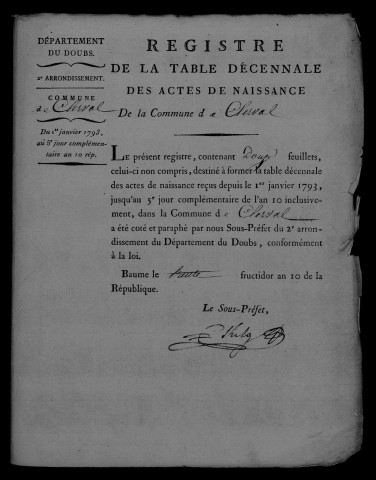 DÉPARTEMENT
DU DOUBS.
2e ARRONDISSEMENT.
COMMUNE
de Clerval
Du 1er janvier 1793,
au 5e jour complémen-
taire an 10 rép.
REGISTRE
DE LA TABLE DÉCENNALE
DES ACTES DE NAISSANCE
De la Commune de Clerval
LE présent registre, contenant Douze feuillets,
celui-ci non compris, destiné à former la table décennale
des actes de naissance reçus depuis le 1er janvier 1793,
jusqu'au 5e jour complémentaire de l'an 10 inclusive-
ment, dans la Commune de Clerval
a été coté et paraphé par nous Sous-Préfet du 2e arron-
dissement du Département du Doubs, conformément
à la loi.
Baume le trente fructidor an 10 de la
République.
Le Sous-Préfet,